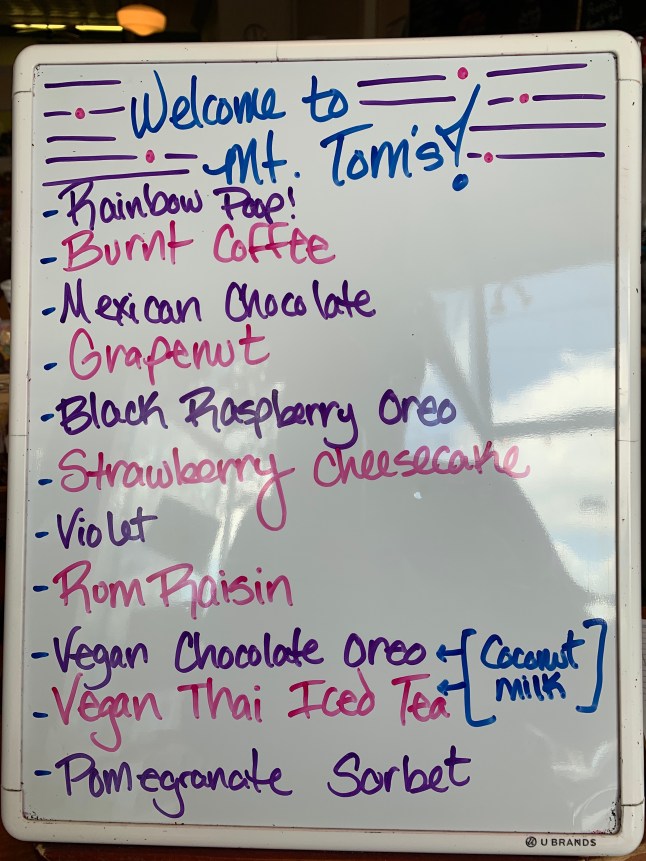 Welcome to
Mt. Tom's!
- Rainbow Poop!
- Burnt Coffee
- Mexican Chocolate
- Grapenut
- Black Raspberry Oreo
- Strawberry Cheesecake
- Violet
- Rom Raisin
- Vegan Chocolate Oreo ← [Coconut
- Vegan Thai Iced Tea ← milk]
- Pomegranate Sorbet
U BRANDS